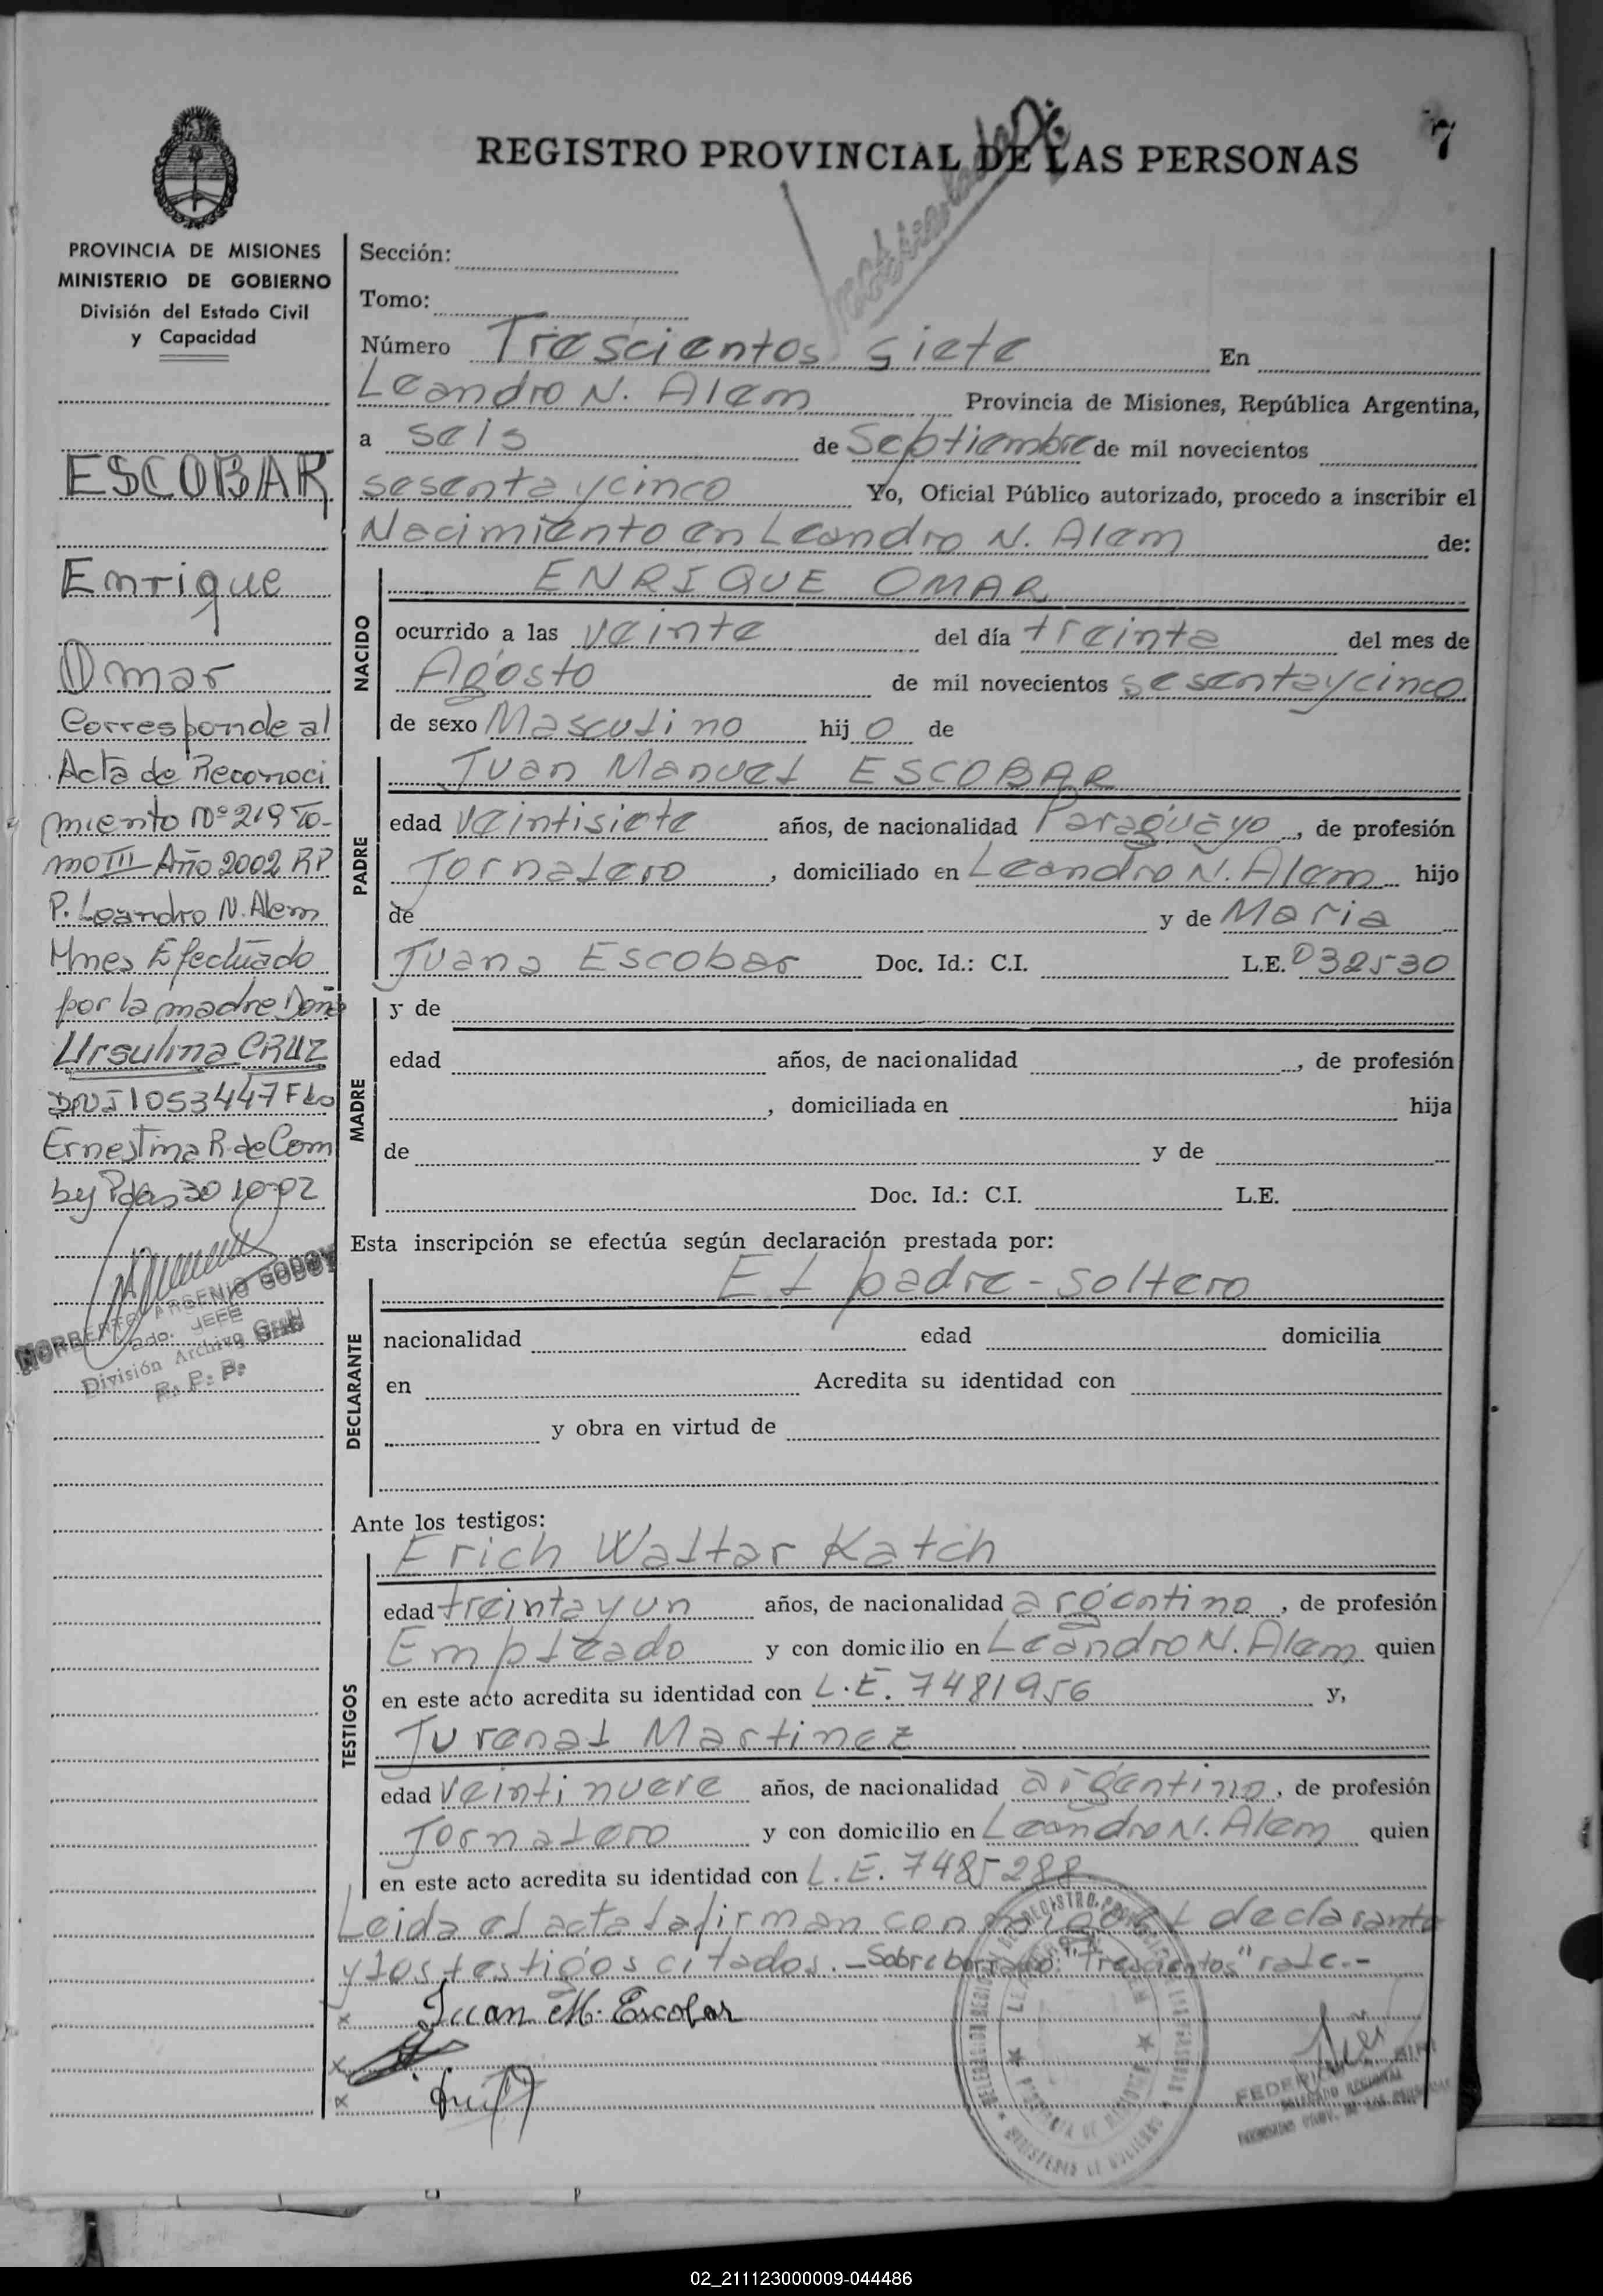 REGISTRO PROVINCIAL DE LAS PERSONAS
7
PROVINCIA DE MISIONES
MINISTERIO DE GOBIERNO
División del Estado Civil
y Capacidad
ESCOBAR
Enrique
Omar
Corresponde al
Acta de Reconoci
miento Nº 219 To-
mo III Año 2002 RP
P. Leandro N. Alem
Mnes Efectuado
por la madre Doña
Ursulina CRUZ
DNI 1053447 Fdo
Ernestina R. de Com
by Pdas 30 10-02
NORBERTO ARSENIO GODOY
JEFE
División Archivo Gral
R. P. P.
Sección:
Tomo:
Número Trescientos siete En
Leandro N. Alem Provincia de Misiones, República Argentina,
a seis de Septiembre de mil novecientos
sesentaycinco Yo, Oficial Público autorizado, procedo a inscribir el
Nacimiento en Leandro N. Alem de:
NACIDO
ENRIQUE OMAR
ocurrido a las veinte del día treinta del mes de
Agosto de mil novecientos sesentaycinco
de sexo Masculino hij o de
PADRE
Juan Manuel ESCOBAR
edad veintisiete años, de nacionalidad Paraguayo, de profesión
Jornalero, domiciliado en Leandro N. Alem hijo
de y de Maria
Juana Escobar Doc. Id.: C.I. L.E. 032530
MADRE
y de
edad años, de nacionalidad , de profesión
, domiciliada en hija
de y de
Doc. Id.: C.I. L.E.
Esta inscripción se efectúa según declaración prestada por:
DECLARANTE
El padre - soltero
nacionalidad edad domicilia
en Acredita su identidad con
y obra en virtud de
Ante los testigos:
TESTIGOS
Erich Waltar Katch
edad treintayun años, de nacionalidad argentino, de profesión
Empleado y con domicilio en Leandro N. Alem quien
en este acto acredita su identidad con L.E. 7481956 y,
Juvenal Martinez
edad veintinueve años, de nacionalidad argentino, de profesión
Jornalero y con domicilio en Leandro N. Alem quien
en este acto acredita su identidad con L.E. 7485288
Leida el acta la firman conmigo el declarante
y los testigos citados.- Sobreborrado: "Trescientos" vale.-
x Juan M. Escobar
x
x
DELEGADO REGIONAL
02_211123000009-044486